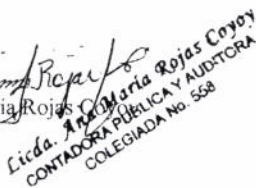 Rojas
ia Rojas Coyoy
Licda. Ana María Rojas Coyoy
CONTADORA PÚBLICA Y AUDITORA
COLEGIADA No. 558